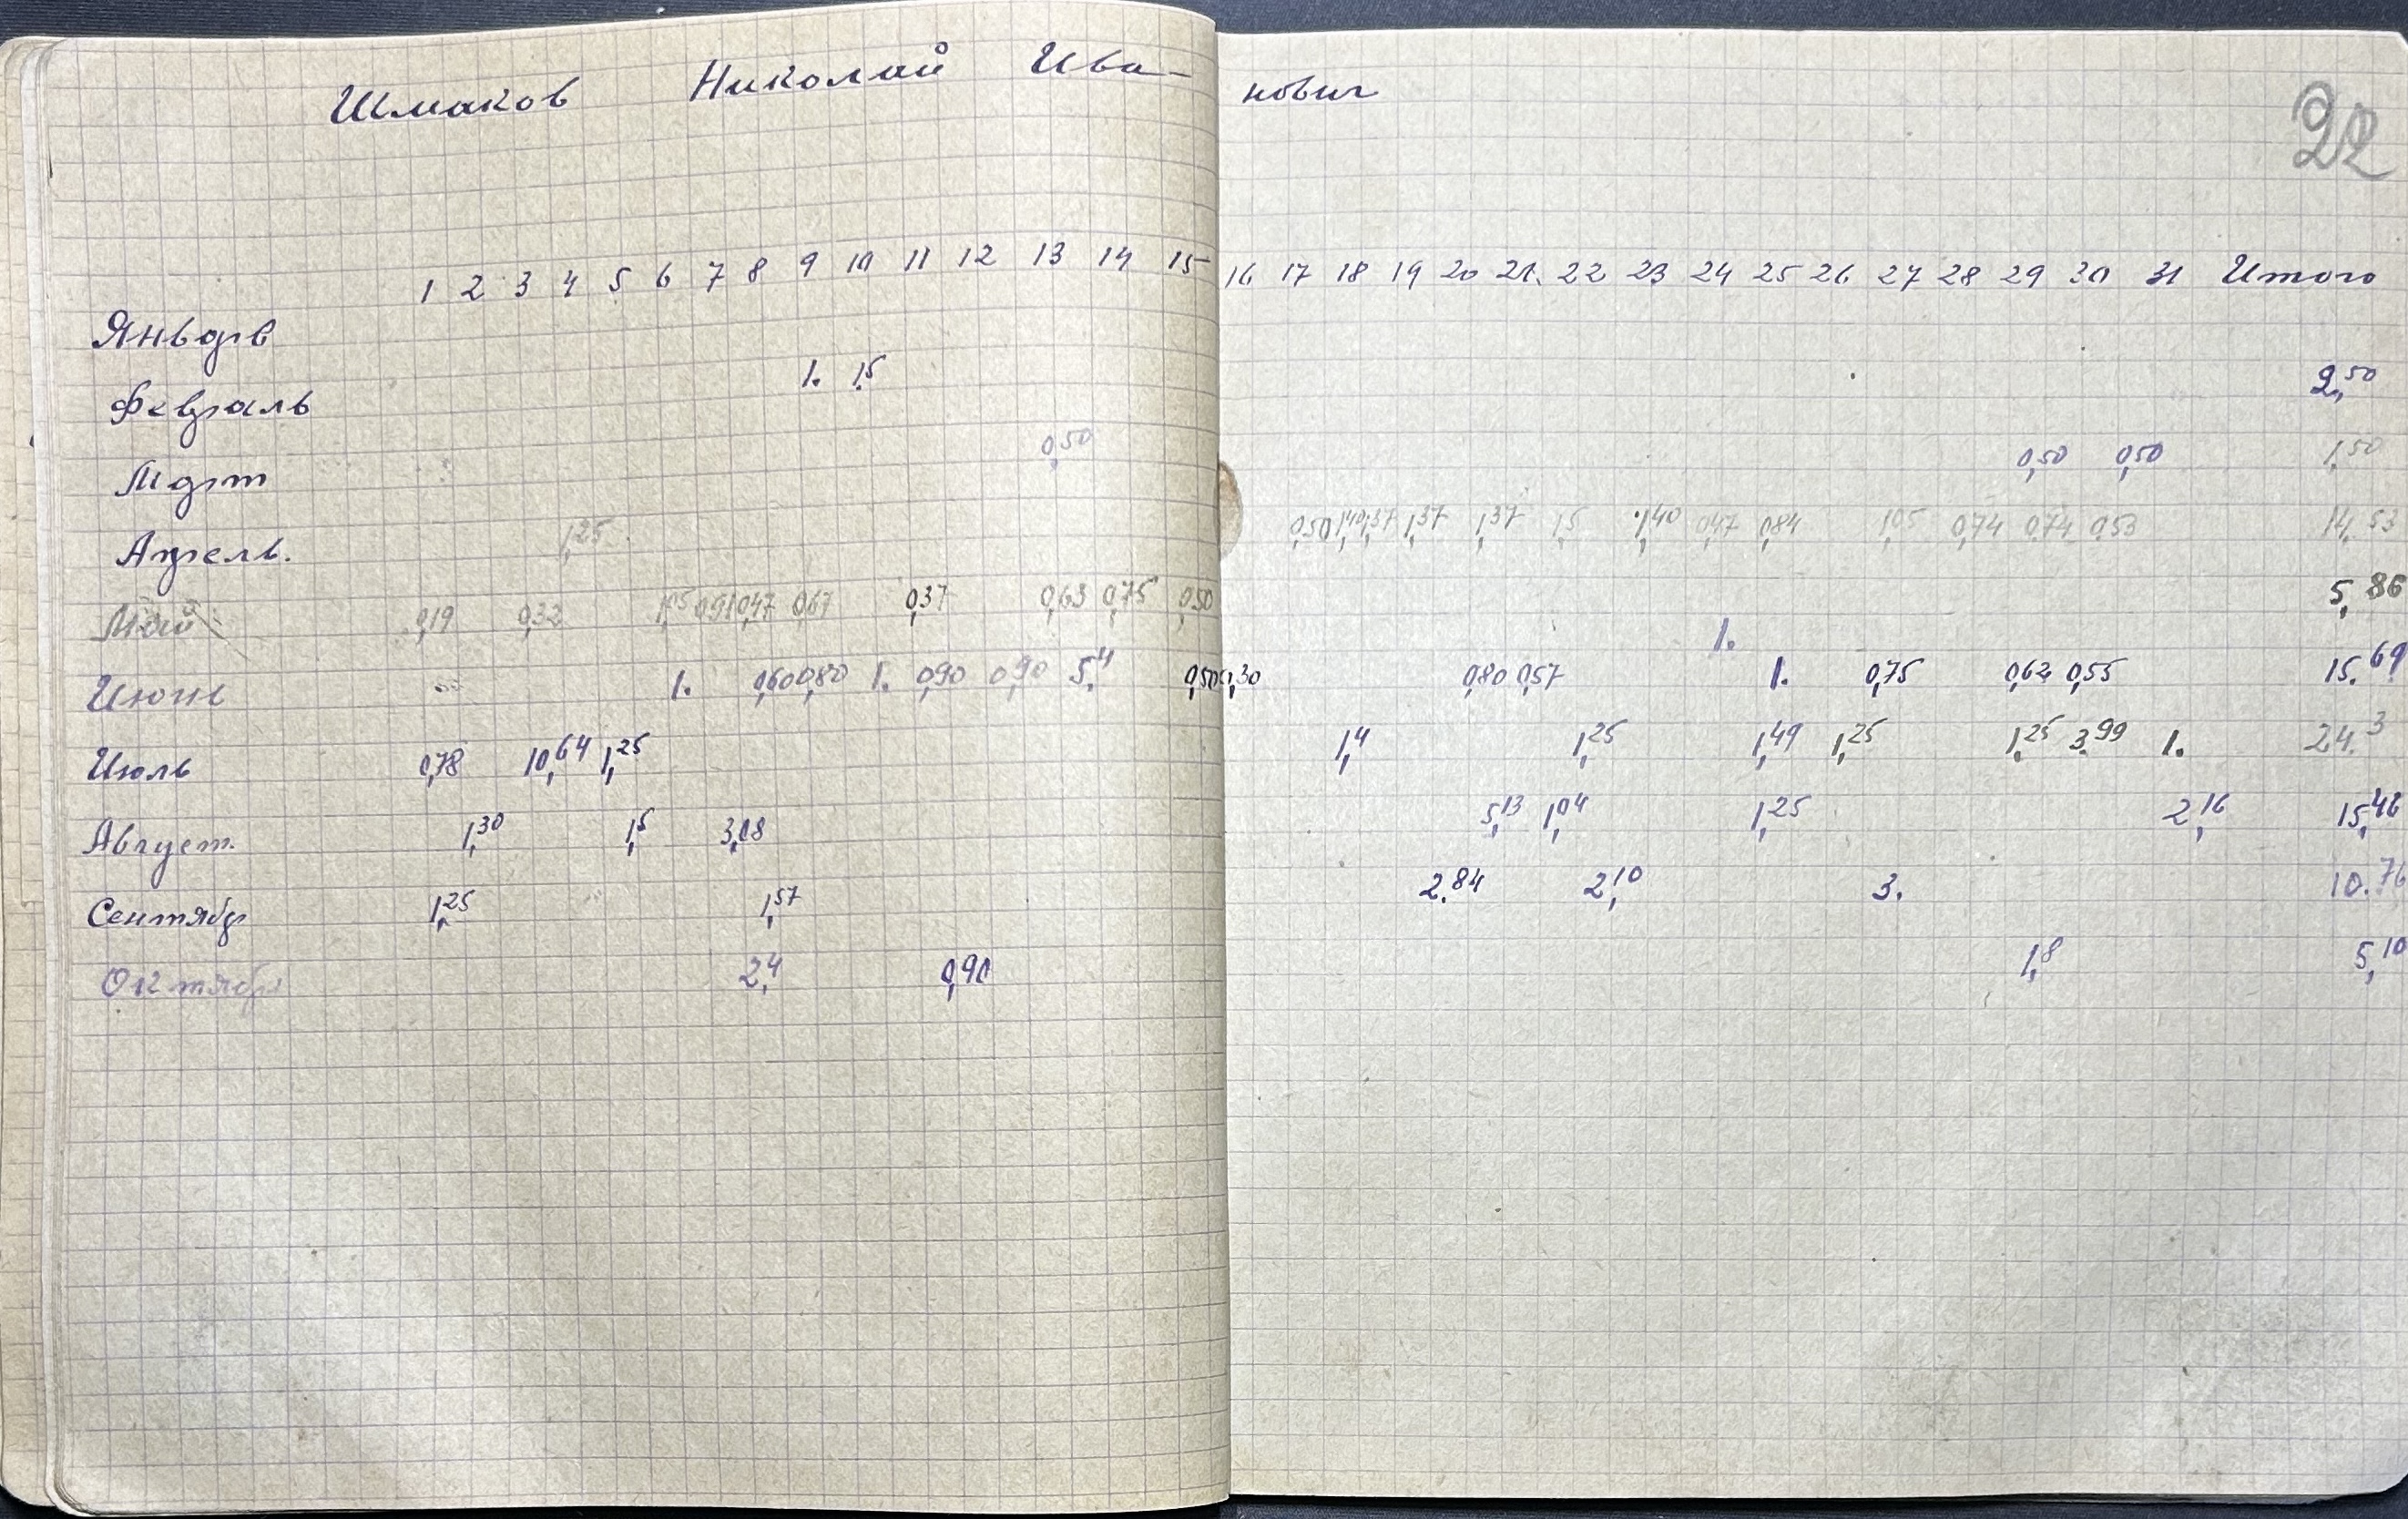 Шмаков Николай Ивановит
22
1 2 3 4 5 6 7 8 9 10 11 12 13 14 15 16 17 18 19 20 21. 22 23 24 25 26 27 28 29 30 31 Итого
Январь
Февраль 1. 1,5 2,50
Март 0,50 0,50 0,50 1,50
Апрель. 1,25 0,50 1,40 1,37 1,37 1,37 1,5 1,40 0,47 0,84 1,05 0,74 0,74 0,53 14,53
Май 0,19 0,32 1,05 0,91 0,47 0,67 0,37 0,63 0,75 0,50 5,86
1.
Июнь 1. 0,60 0,80 1. 0,90 0,90 5,4 0,50 0,30 0,80 0,57 1. 0,75 0,62 0,55 15.69
Июль 0,78 10,64 1,25 1,4 1,25 1,49 1,25 1,25 3,99 1. 24.3
Август. 1,30 1,5 3,08 5,13 1,04 1,25 2,16 15,46
Сентябр 1,25 1,57 2.84 2,10 3. 10.76
Октябр 2,4 0,90 1,8 5,10